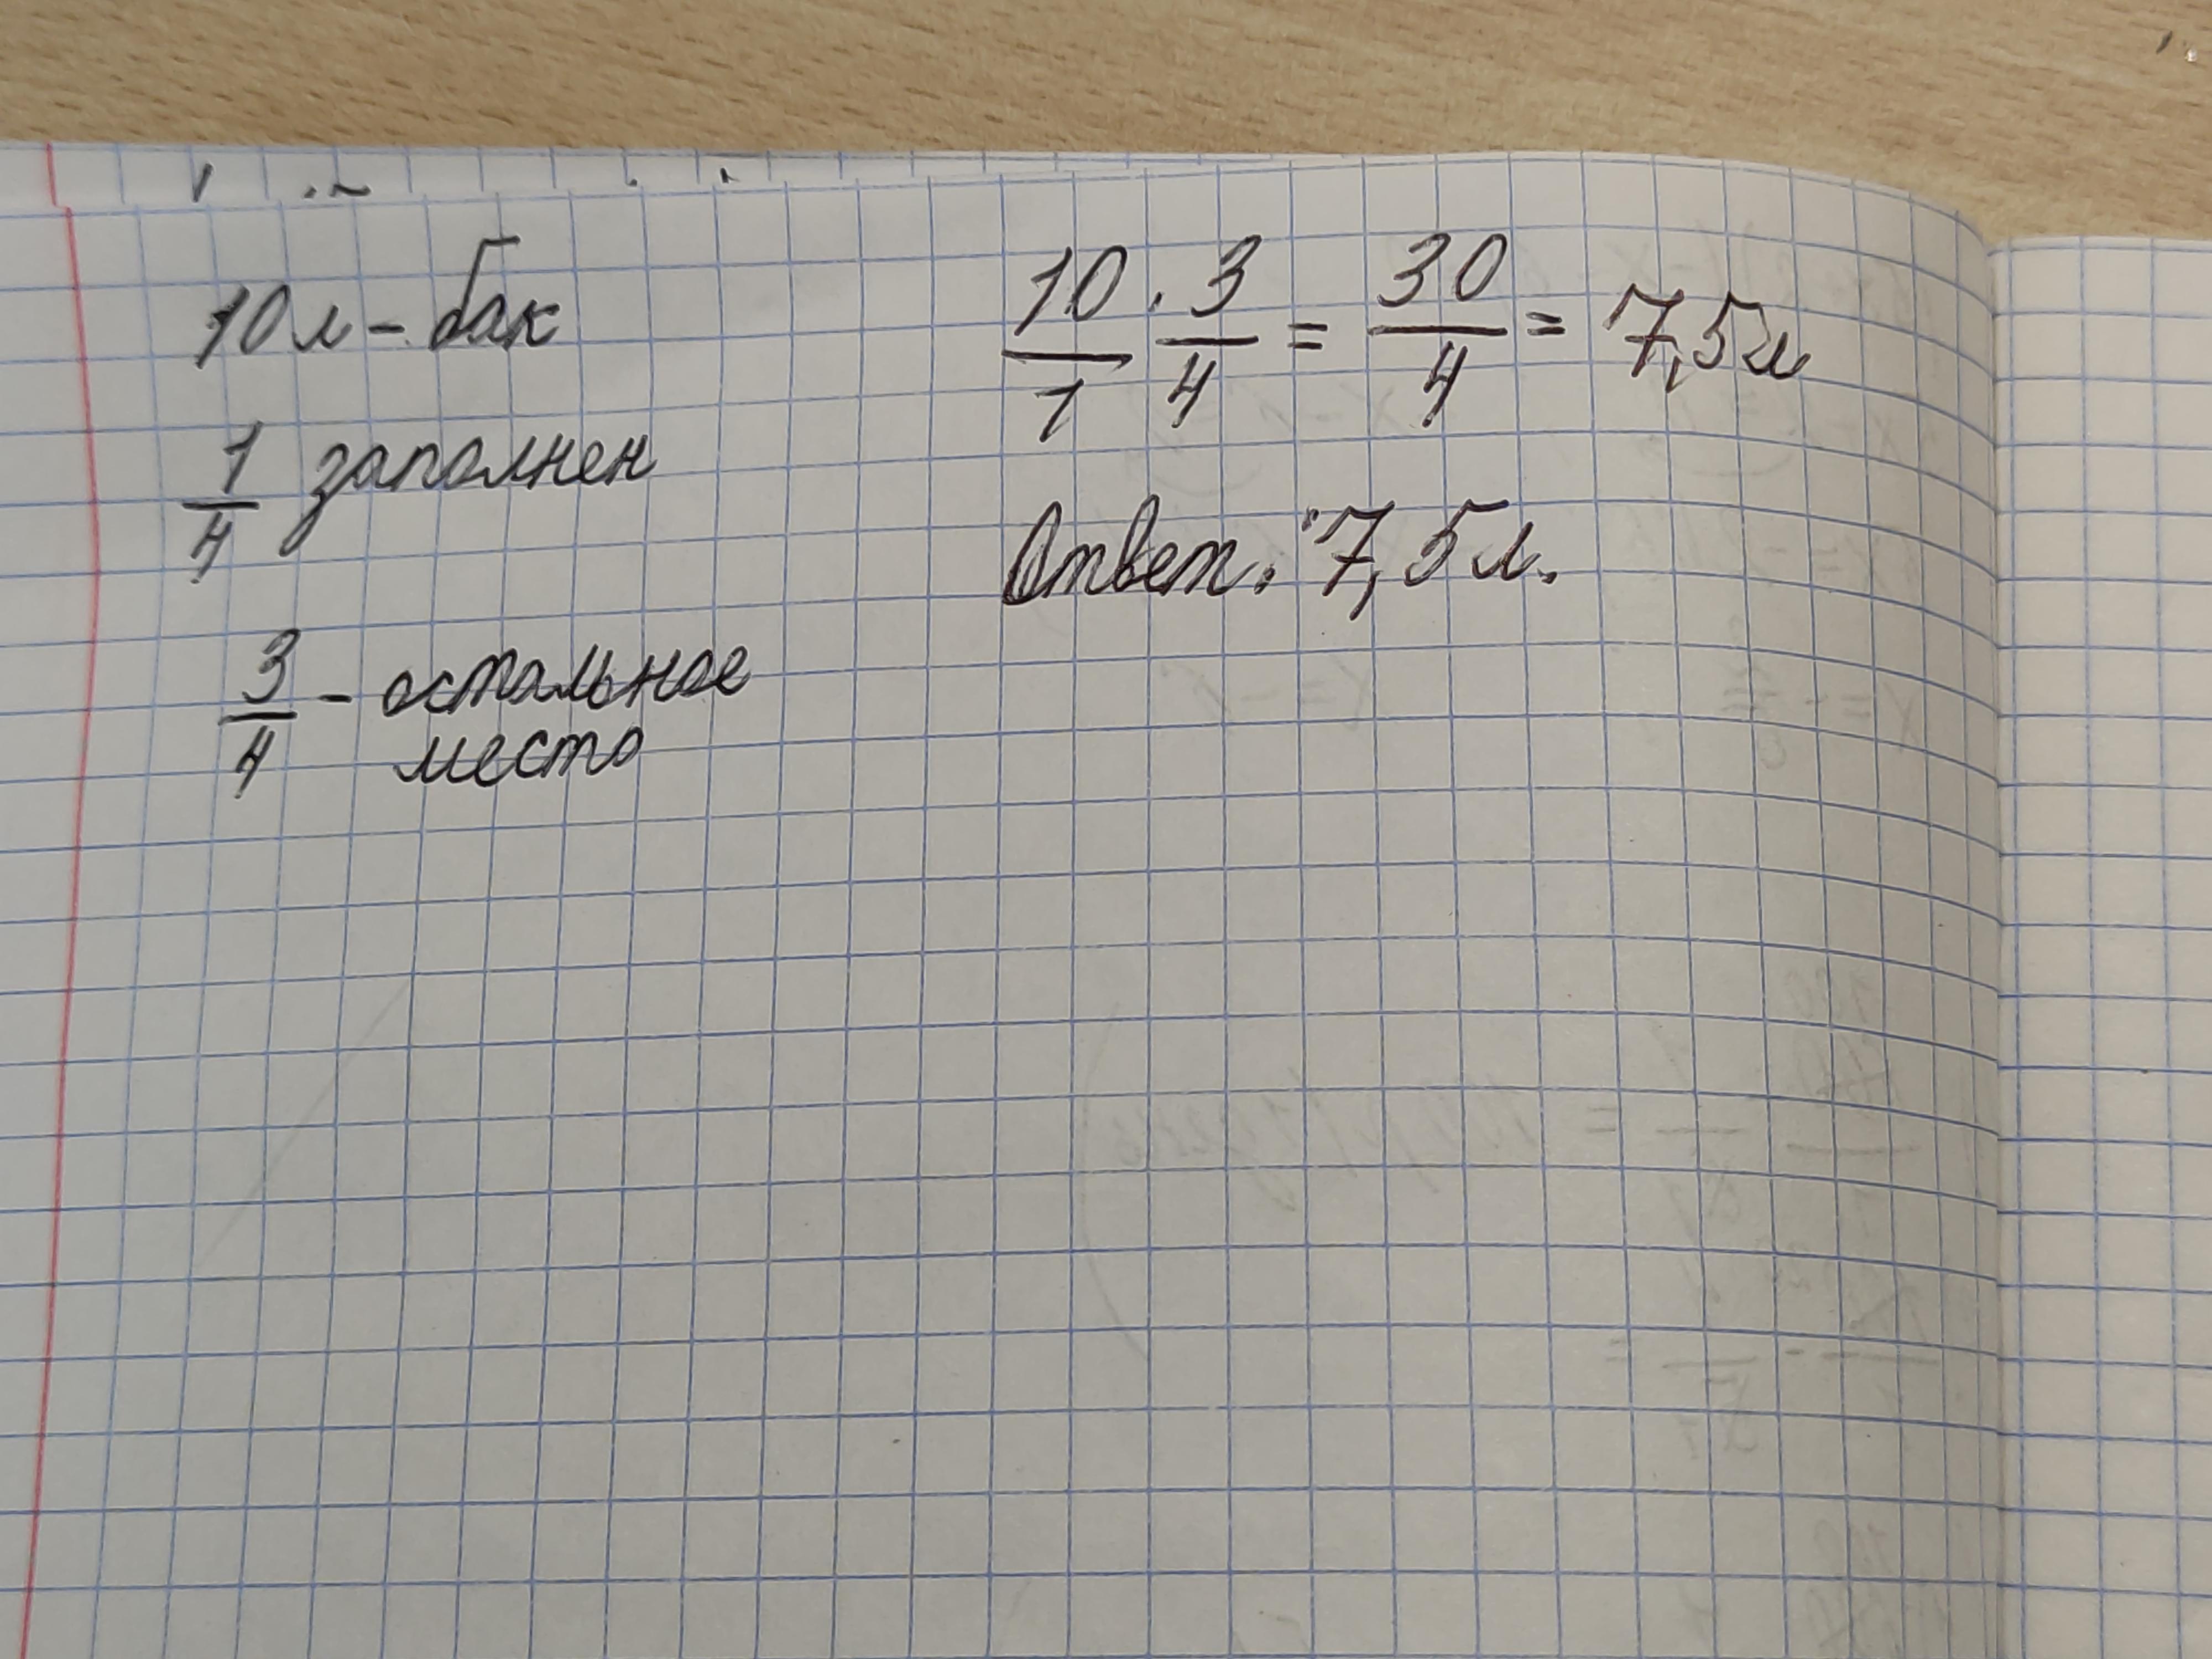 10 л – бак
1/4 заполнен
3/4 – остальное
место
10/1 · 3/4 = 30/4 = 7,5 л
Ответ: 7,5 л.